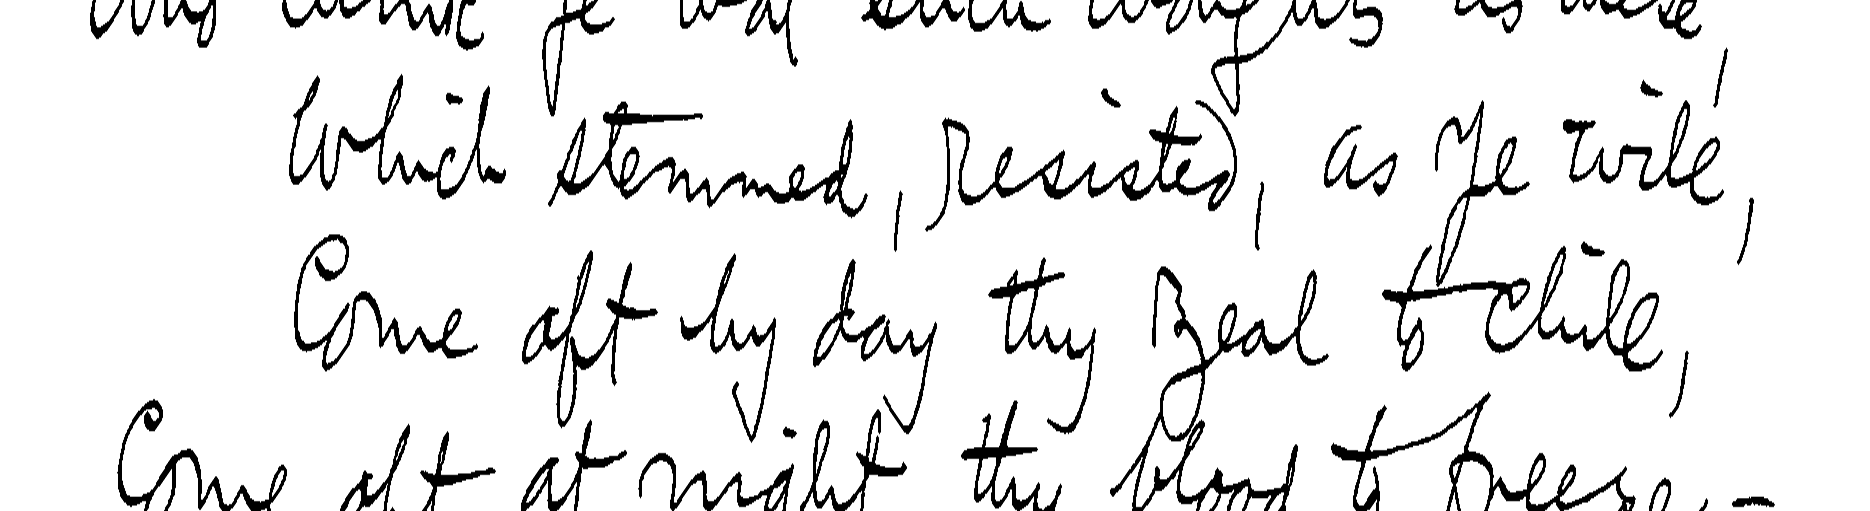 think ye that such thoughts as these,
Which stemmed, resisted, as Ye will,
Come oft by day thy Zeal to chill,
Come oft at night thy blood to freeze, –